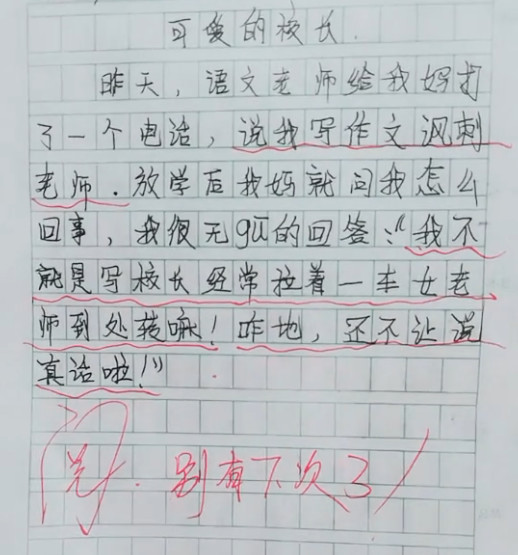 可爱的校长.
昨天，语文老师给我妈打
了一个电话，说我写作文讽刺
老师.放学后我妈就问我怎么
回事，我很无gū的回答："我不
就是写校长经常拉着一车女老
师到处转嘛！咋地，还不让说
真话啦！"
别有下次了